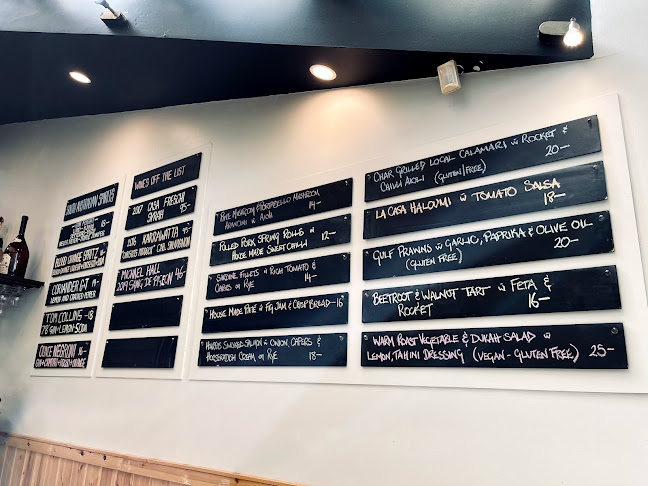 SOUTH AUSTRALIAN SPIRITS
BLOOD ORANGE SPRITZ
CORIANDER GT 14-
LEMON AND CRACKED PEPPER
TOM COLLINS -18
78° GIN + LEMON + SODA
OUNCE NEGRONI 16-
WINES OFF THE LIST
2017 CASA FRESCHI
SYRAH 95-
2016 KARRAWATTA
CAB. SAUVIGNON 95-
MICHAEL HALL
2019 SANG DE PIGEON 46-
RYE MUSHROOM & PORCINI
ARANCINI W AIOLI 14-
PULLED PORK SPRING ROLLS W
HOUSE MADE SWEET CHILLI 12-
SARDINE FILLETS W RICH TOMATO &
CAPERS ON RYE 14-
HOUSE MADE PATÉ W FIG JAM & CRISP BREAD -16
HARRIS SMOKED SALMON W ONION, CAPERS &
HORSERADISH CREAM ON RYE 18-
CHAR GRILLED LOCAL CALAMARI W ROCKET &
CHILLI AIOLI (GLUTEN/FREE) 20-
LA CASA HALOUMI W TOMATO SALSA
18-
GULF PRAWNS W GARLIC, PAPRIKA & OLIVE OIL
(GLUTEN FREE) 20-
BEETROOT & WALNUT TART W FETA &
ROCKET 16-
WARM ROAST VEGETABLE & DUKAH SALAD W
LEMON, TAHINI DRESSING (VEGAN - GLUTEN FREE) 25-